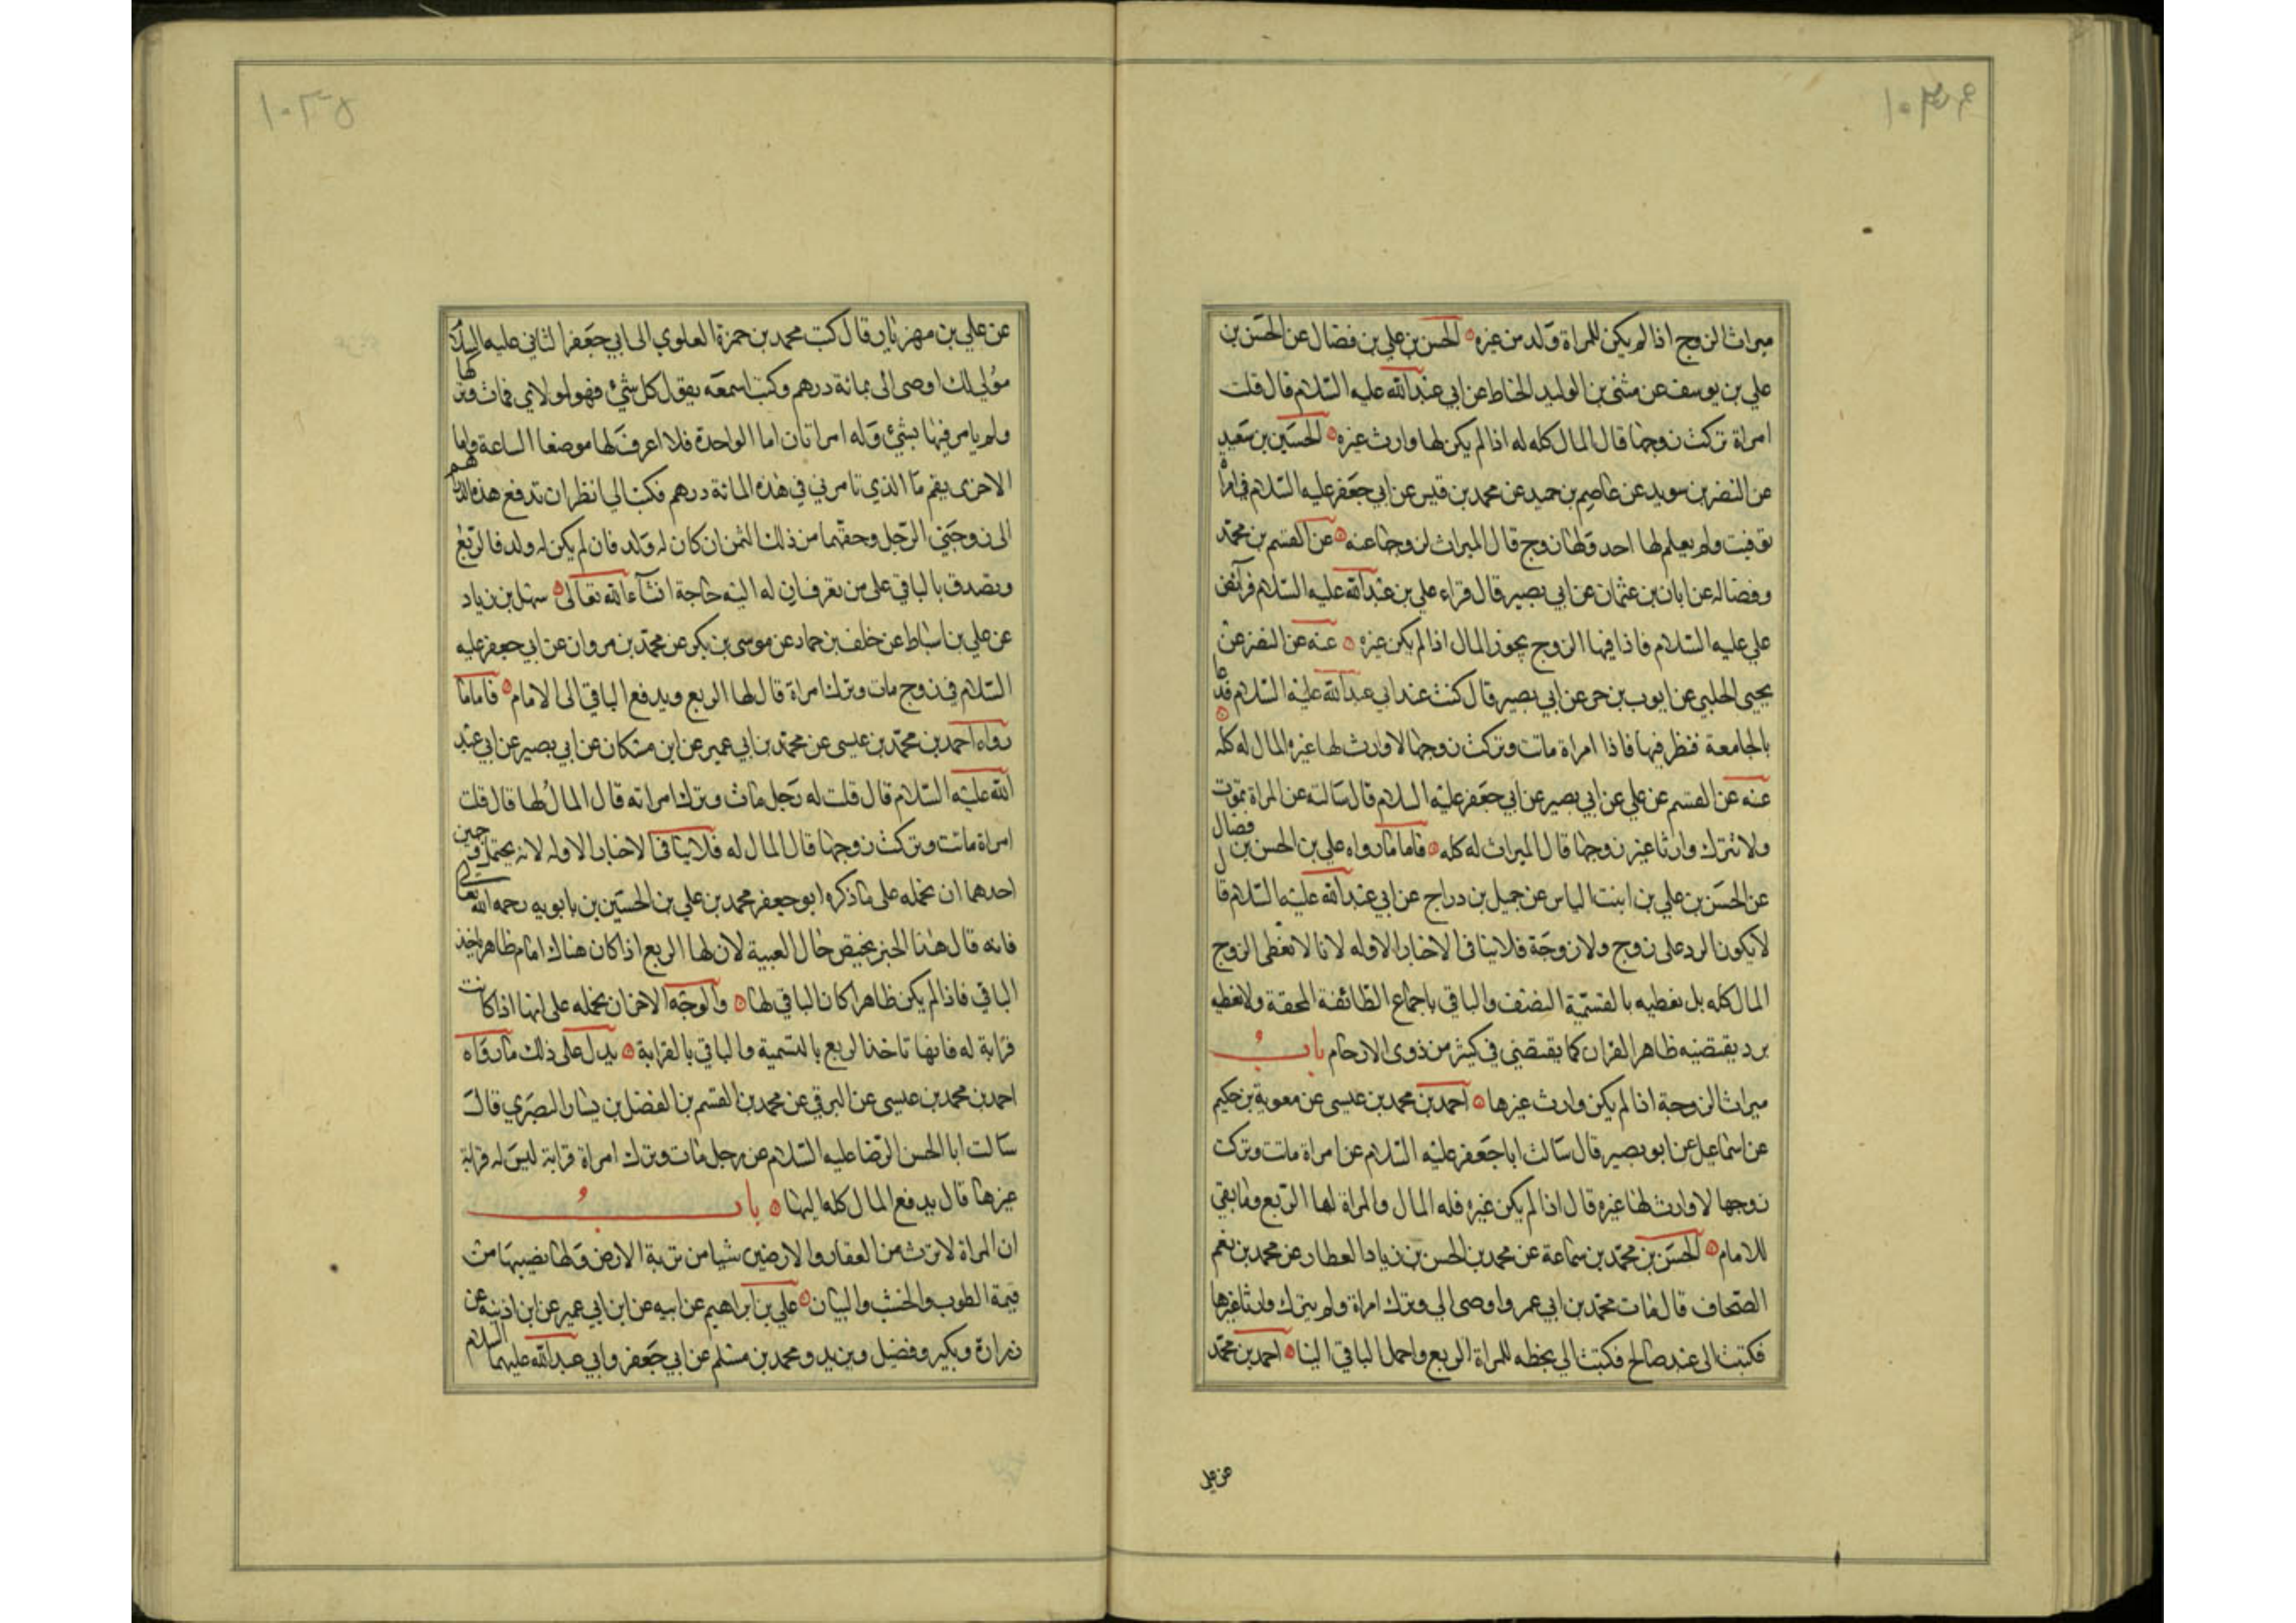 ١٠٣٤
ميراث الزوج اذا لم يكن للمراة ولد من غيره الحسن بن علي بن فضال عن الحسن بن
علي بن يوسف عن مثنى بن الوليد الخاط عن ابي عبد الله عليه السلام قال قلت
امراة تركت زوجها قال المال كله له اذا لم يكن لها وارث غيره الحسين بن سعيد
عن النضر بن سويد عن عاصم بن حميد عن محمد بن قيس عن ابي جعفر عليه السلام في امراة
توفيت ولم يعلم لها احد ولها زوج قال الميراث لزوجها عنه عن القسم بن محمد
وفضاله عن ابان بن عثمان عن ابي بصير قال قراء علي بن عبد الله عليه السلام فرائض
علي عليه السلام فاذا فيها الزوج يحوز المال اذا لم يكن غيره عنه عن النضر عن
يحيى الحلبي عن ايوب بن حر عن ابي بصير قال كنت عند ابي عبد الله عليه السلام فدعا
بالجامعة فنظر فيها فاذا امراة ماتت وتركت زوجها لا وارث لها غيره المال له كله
عنه عن القسم عن علي عن ابي بصير عن ابي جعفر عليه السلام قال سالته عن المراة تموت
ولا تترك وارثا غير زوجها قال الميراث له كله فاما ما رواه علي بن الحسن بن فضال
عن الحسن بن علي بن ابنت الياس عن جميل بن دراج عن ابي عبد الله عليه السلام قال
لا يكون الرد على زوج ولا زوجة فلا ينافى الاخبار الاوله لانا لا نعطى الزوج
المال كله بل نعطيه بالقسمية النصف والباقي باجماع الطائفة المحقة ولا نعطيه
برد يقتضيه ظاهر القران كما يقتضي في كثير من ذوى الارحام باب
ميراث الزوجة اذا لم يكن وارث غيرها احمد بن محمد بن عيسى عن معوية بن حكيم
عن اسماعيل عن ابو بصير قال سالت ابا جعفر عليه السلام عن امراة ماتت وتركت
زوجها لا وارث لها غيره قال اذا لم يكن غيره فله المال والمراة لها الربع وما بقي
للامام الحسن بن محمد بن سماعة عن محمد بن الحسن بن زياد العطار عن محمد بن نعيم
الصحاف قال مات محمد بن ابي عمر واوصى الي وترك امراة ولم يترك وارثا غيرها
فكتبت الى عبد صالح فكتب الي بخطه للمراة الربع واحمل الباقي الينا احمد بن محمد
عن علي
١٠٣٥
عن علي بن مهزيار قال كتب محمد بن حمزة العلوي الى ابي جعفر الثاني عليه السلام
مولى لك اوصى الى بمائة درهم وكنت اسمعه يقول كل شيء فهو لمولاي فمات وتركها
ولم يامر فيها بشيء وله امراتان اما الواحدة فلا اعرف لها موضعا الساعة واما
الاخرى بقم ما الذي تامرني في هذه المائة درهم فكتب الي انظر ان تدفع هذه الدراهم
الى زوجتي الرجل وحقهما من ذلك الثمن ان كان له ولد فان لم يكن له ولد فالربع
وتصدق بالباقي على من تعرف ان له اليه حاجة انشاء الله تعالى سهل بن زياد
عن علي بن اسباط عن خلف بن حماد عن موسى بن بكر عن محمد بن مروان عن ابي جعفر عليه
السلام في زوج مات وترك امراة قال لها الربع ويدفع الباقي الى الامام فاما ما
رواه احمد بن محمد بن عيسى عن محمد بن ابي عمير عن ابن مسكان عن ابي بصير عن ابي عبد
الله عليه السلام قال قلت له رجل مات وترك امراته قال المال لها قال قلت
امراة ماتت وتركت زوجها قال المال له فلا ينافى الاخبار الاوله لانه يحتمل وجهين
احدهما ان نحمله على ما ذكره ابو جعفر محمد بن علي بن الحسين بن بابويه رحمه الله تعالى
فانه قال هذا الخبر يختص حال الغيبة لان لها الربع اذا كان هناك امام ظاهر ياخذ
الباقي فاذا لم يكن ظاهرا كان الباقي لها والوجه الاخر ان نحمله على انها اذا كانت
قرابة له فانها تاخذ الربع بالتسمية والباقي بالقرابة يدل على ذلك ما رواه
احمد بن محمد بن عيسى عن البرقي عن محمد بن القسم بن الفضل بن يسار البصري قال
سالت ابا الحسن الرضا عليه السلام عن رجل مات وترك امراة قرابة ليس له قرابة
غيرها قال يدفع المال كله اليها باب
ان المراة لا ترث من العقار والارضين شيا من تربة الارض ولها نصيبها من
قيمة الطوب والخشب والبنيان علي بن ابراهيم عن ابيه عن ابن ابي عمير عن ابن اذينه عن
زرارة وبكير وفضيل وبريد ومحمد بن مسلم عن ابي جعفر وابي عبد الله عليهما السلام